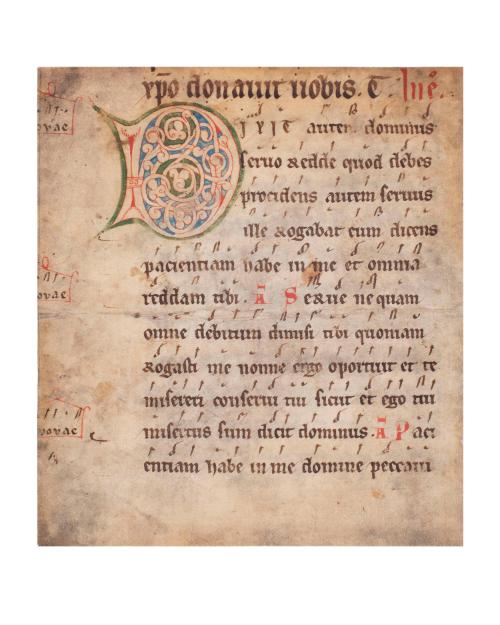 xp̄o donauit nobis. T In eͣ.
DIXIT autem dominus
seruo Redde quod debes
procidens autem seruus
ille Rogabat eum dicens
pacientiam habe in me et omnia
reddam tibi. A Serue nequam
omne debitum dimisi tibi quoniam
Rogasti me nonne ergo oportuit et te
misereri conserui tui sicut et ego tui
misertus sum dicit dominus. A Paci
entiam habe in me domine peccaui
ovae
ovae
ovae